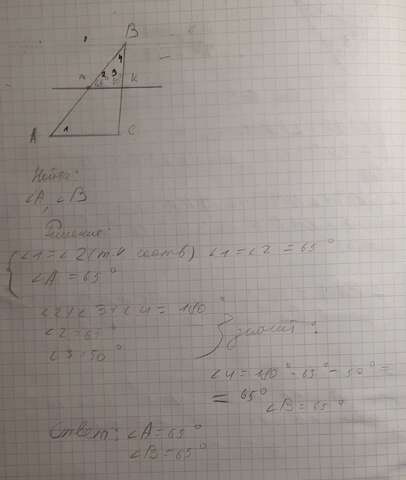 B
4
2 3
K
A 1 C
Найти:
∠A, ∠B
Решение:
∠1=∠2 (т.к соотв) ∠1=∠2=65°
∠A=65°
∠2+∠3+∠4=180°
∠2=65°
∠3=50°
значит:
∠4=180°-65°-50°=
=65°
∠B=65°
Ответ: ∠A=65°
∠B=65°